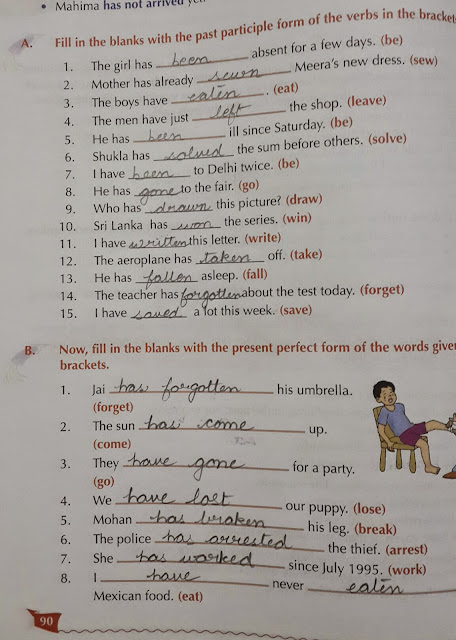 • Mahima has not arrived yet.
A. Fill in the blanks with the past participle form of the verbs in the bracket
1. The girl has been absent for a few days. (be)
2. Mother has already sewn Meera's new dress. (sew)
3. The boys have eaten. (eat)
4. The men have just left the shop. (leave)
5. He has been ill since Saturday. (be)
6. Shukla has solved the sum before others. (solve)
7. I have been to Delhi twice. (be)
8. He has gone to the fair. (go)
9. Who has drawn this picture? (draw)
10. Sri Lanka has won the series. (win)
11. I have written this letter. (write)
12. The aeroplane has taken off. (take)
13. He has fallen asleep. (fall)
14. The teacher has forgotten about the test today. (forget)
15. I have saved a lot this week. (save)
B. Now, fill in the blanks with the present perfect form of the words give
brackets.
1. Jai has forgotten his umbrella.
(forget)
2. The sun has come up.
(come)
3. They have gone for a party.
(go)
4. We have lost our puppy. (lose)
5. Mohan has broken his leg. (break)
6. The police has arrested the thief. (arrest)
7. She has worked since July 1995. (work)
8. I have never eaten
Mexican food. (eat)
90